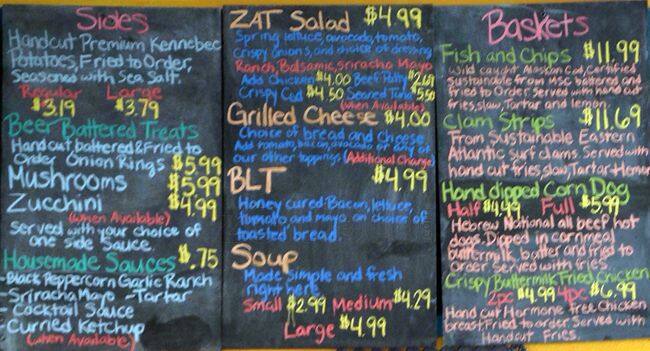 Sides
Handcut Premium Kennebec
Potatoes, Fried to Order,
Seasoned with Sea Salt.
Regular Large
$3.19 $3.79
Beer Battered Treats
Hand cut, battered & Fried to
Order Onion Rings $5.99
Mushrooms $5.99
Zucchini $4.99
(When Available)
Served with your choice of
one side Sauce.
Housemade Sauces $.75
-Black Peppercorn Garlic Ranch
-Sriracha Mayo -Tartar
-Cocktail Sauce
-Curried Ketchup
(When Available)
ZAT Salad $4.99
Spring lettuce, avocado, tomato,
Crispy Onions, and choice of dressing
Ranch, Balsamic, Sriracha Mayo
Add Chicken $4.00 Beef Patty $2.69
Crispy Cod $4.50 Seared Tuna $5.50
(When Available)
Grilled Cheese $4.00
Choice of bread and cheese
Add tomato, bacon, avocado or any of
our other toppings (Additional Charge)
BLT $4.99
Honey cured Bacon, lettuce,
tomato and mayo on choice of
toasted bread
Soup
Made Simple and fresh
right here
Small $2.99 Medium $4.29
Large $4.99
Baskets
Fish and Chips $11.99
Wild caught Alaskan Cod, Certified
Sustainable from MSC battered and
fried to Order. Served with hand cut
fries, slaw, Tartar and lemon.
Clam Strips $11.69
From Sustainable Eastern
Atlantic surf clams. Served with
hand cut fries, slaw, Tartar + lemon
Hand dipped Corn Dog
Half $4.49 Full $5.99
Hebrew National all beef hot
dogs. Dipped in cornmeal
buttermilk batter and fried to
order. Served with fries.
Crispy Buttermilk Fried Chicken
2pc $4.99 4pc $6.99
Hand cut Hormone free Chicken
breast, Fried to order. Served with
Handcut Fries.